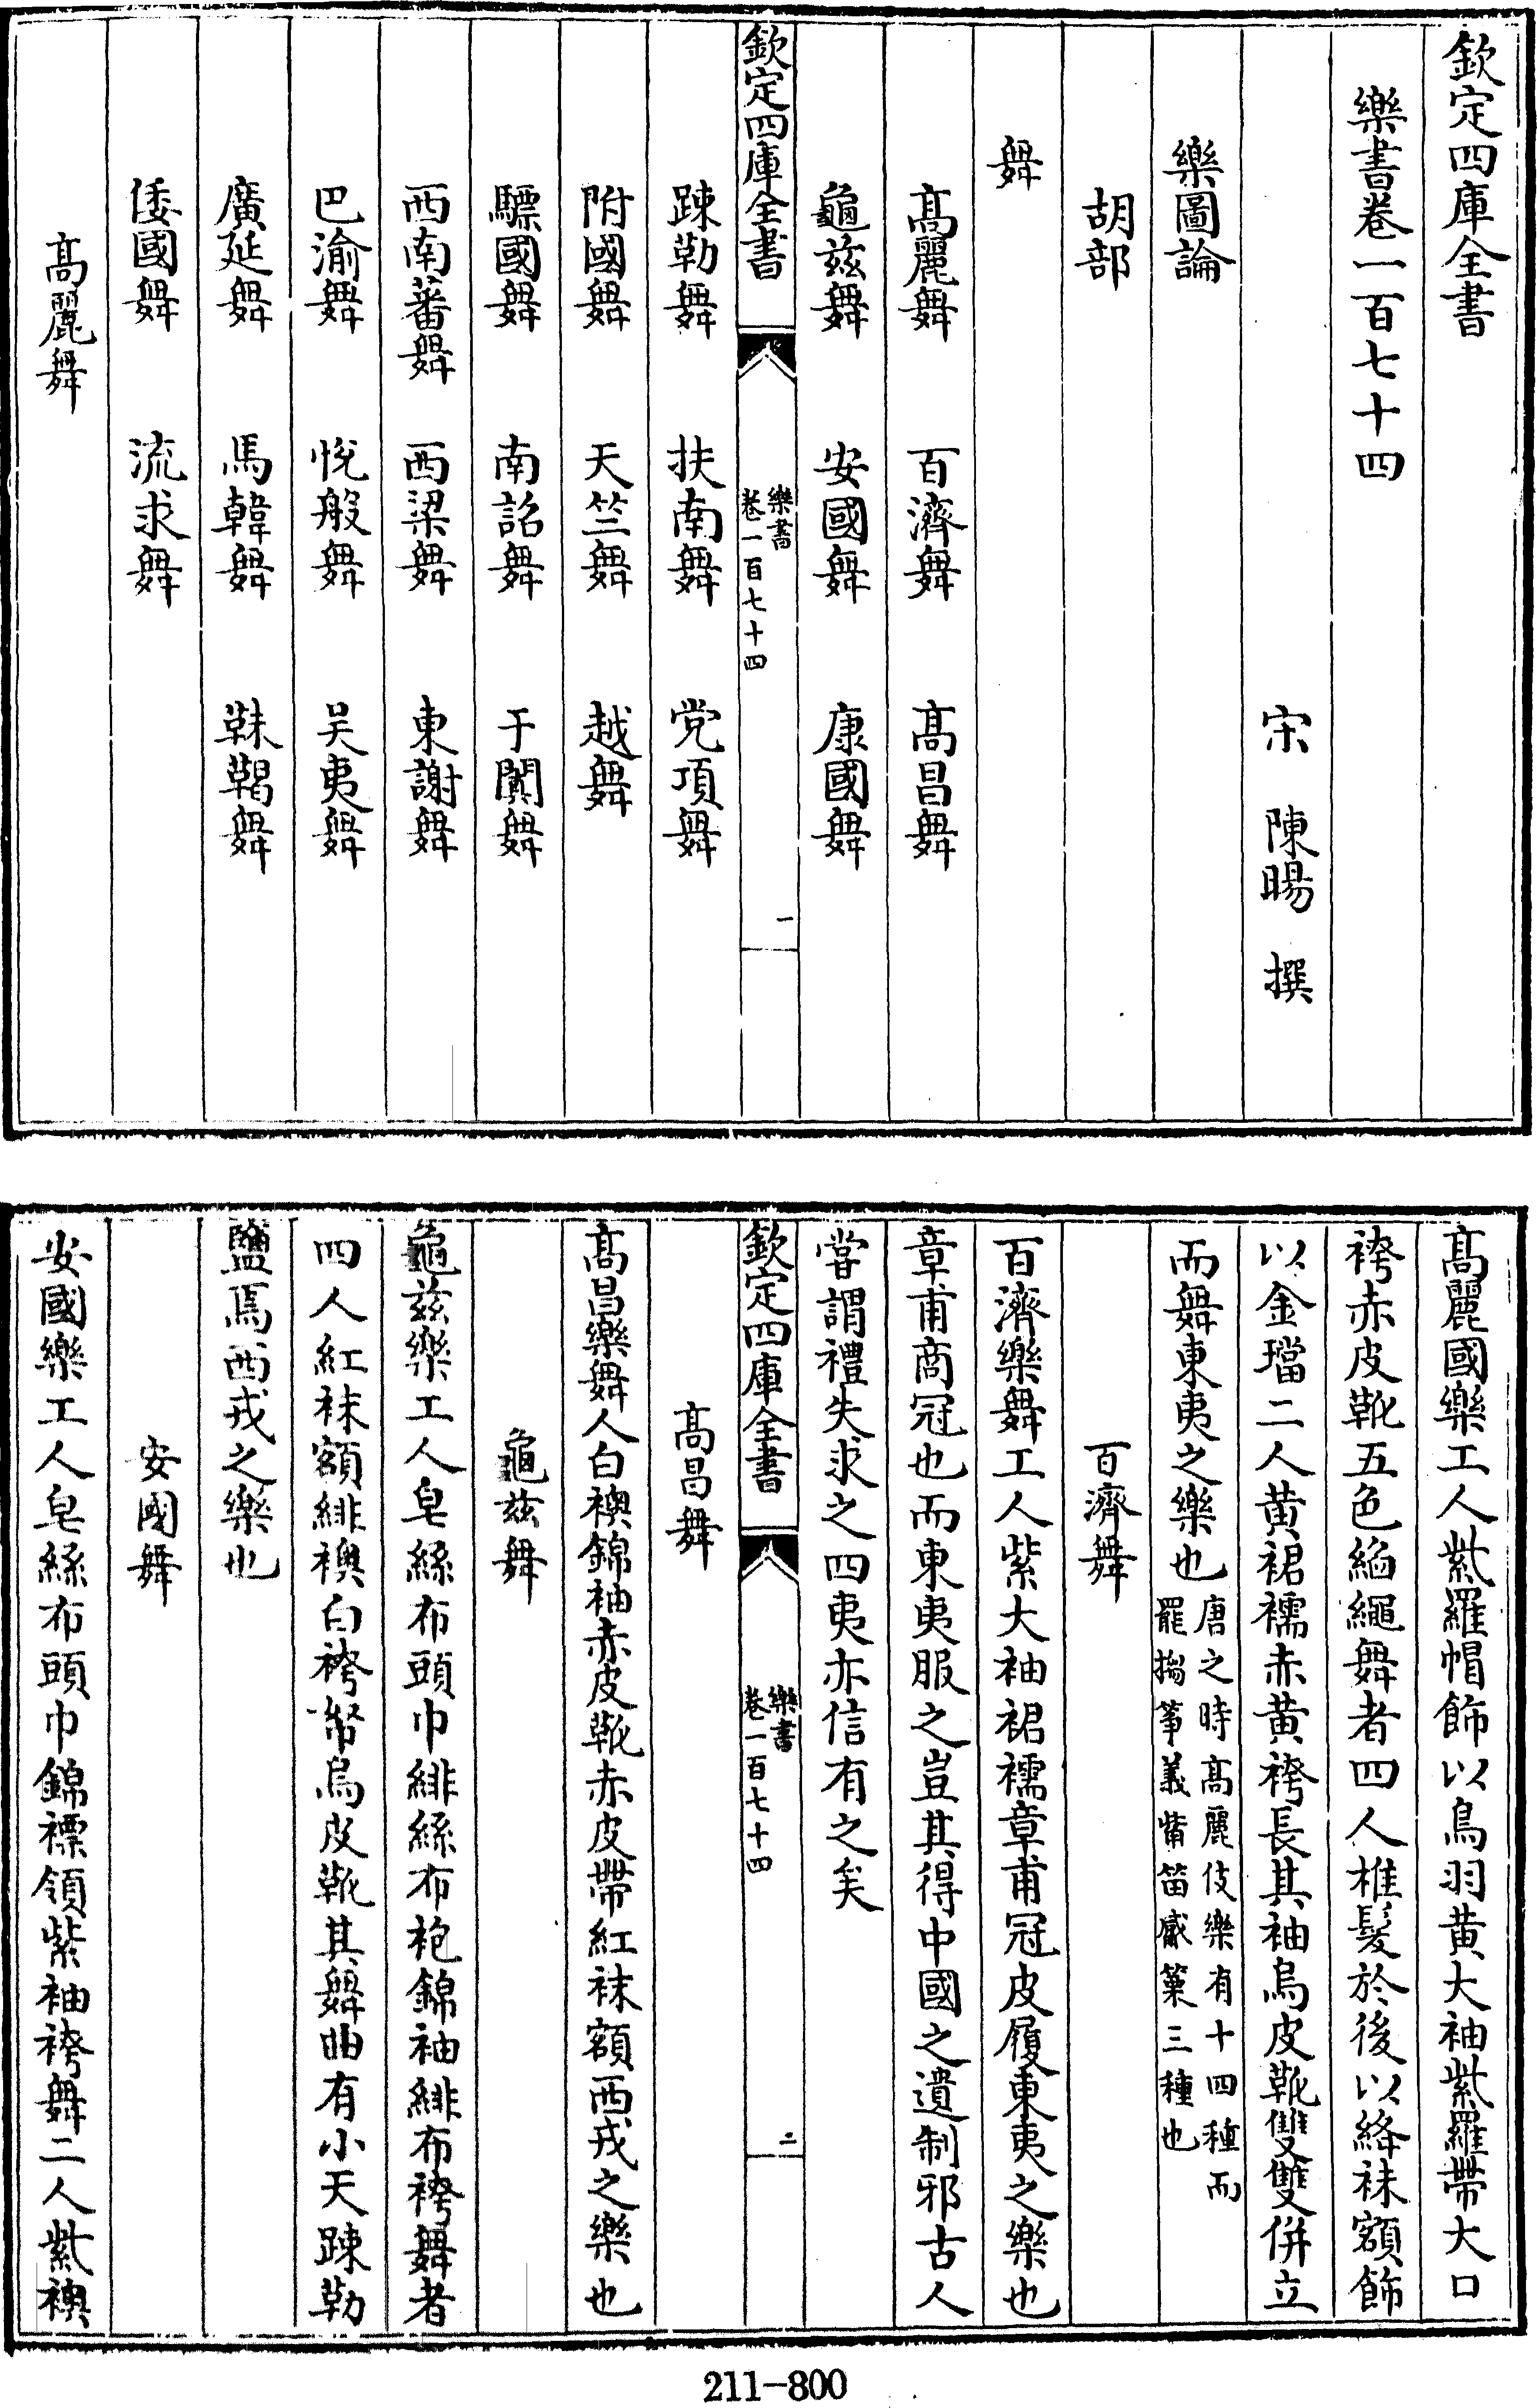 欽定四庫全書
樂書卷一百七十四
宋 陳暘 撰
樂圖論
胡部
舞
髙麗舞 百濟舞 髙昌舞
龜兹舞 安國舞 康國舞
欽定四庫全書 樂書 卷一百七十四 一
踈勒舞 扶南舞 党項舞
附國舞 天竺舞 越舞
驃國舞 南詔舞 于闐舞
西南蕃舞 西梁舞 東謝舞
巴渝舞 悅般舞 吳夷舞
廣延舞 馬韓舞 靺鞨舞
倭國舞 流求舞
髙麗舞
髙麗國樂工人紫羅帽飾以鳥羽黄大袖紫羅帶大口
袴赤皮靴五色縚繩舞者四人椎髮於後以絳袜額飾
以金璫二人黄裙襦赤黄袴長其袖烏皮靴雙雙併立
而舞東夷之樂也唐之時髙麗伎樂有十四種而
罷搊筝義觜笛感篥三種也
百濟舞
百濟樂舞工人紫大袖裙襦章甫冠皮履東夷之樂也
章甫商冠也而東夷服之豈其得中國之遺制邪古人
甞謂禮失求之四夷亦信有之矣
欽定四庫全書 樂書 卷一百七十四 二
髙昌舞
髙昌樂舞人白襖錦袖赤皮靴赤皮帶紅袜額西戎之樂也
龜兹舞
龜兹樂工人皂絲布頭巾緋絲布袍錦袖緋布袴舞者
四人紅袜額緋襖白袴帑烏皮靴其舞曲有小天踈勒
鹽焉西戎之樂也
安國舞
安國樂工人皂絲布頭巾錦褾領紫袖袴舞二人紫襖
211-800